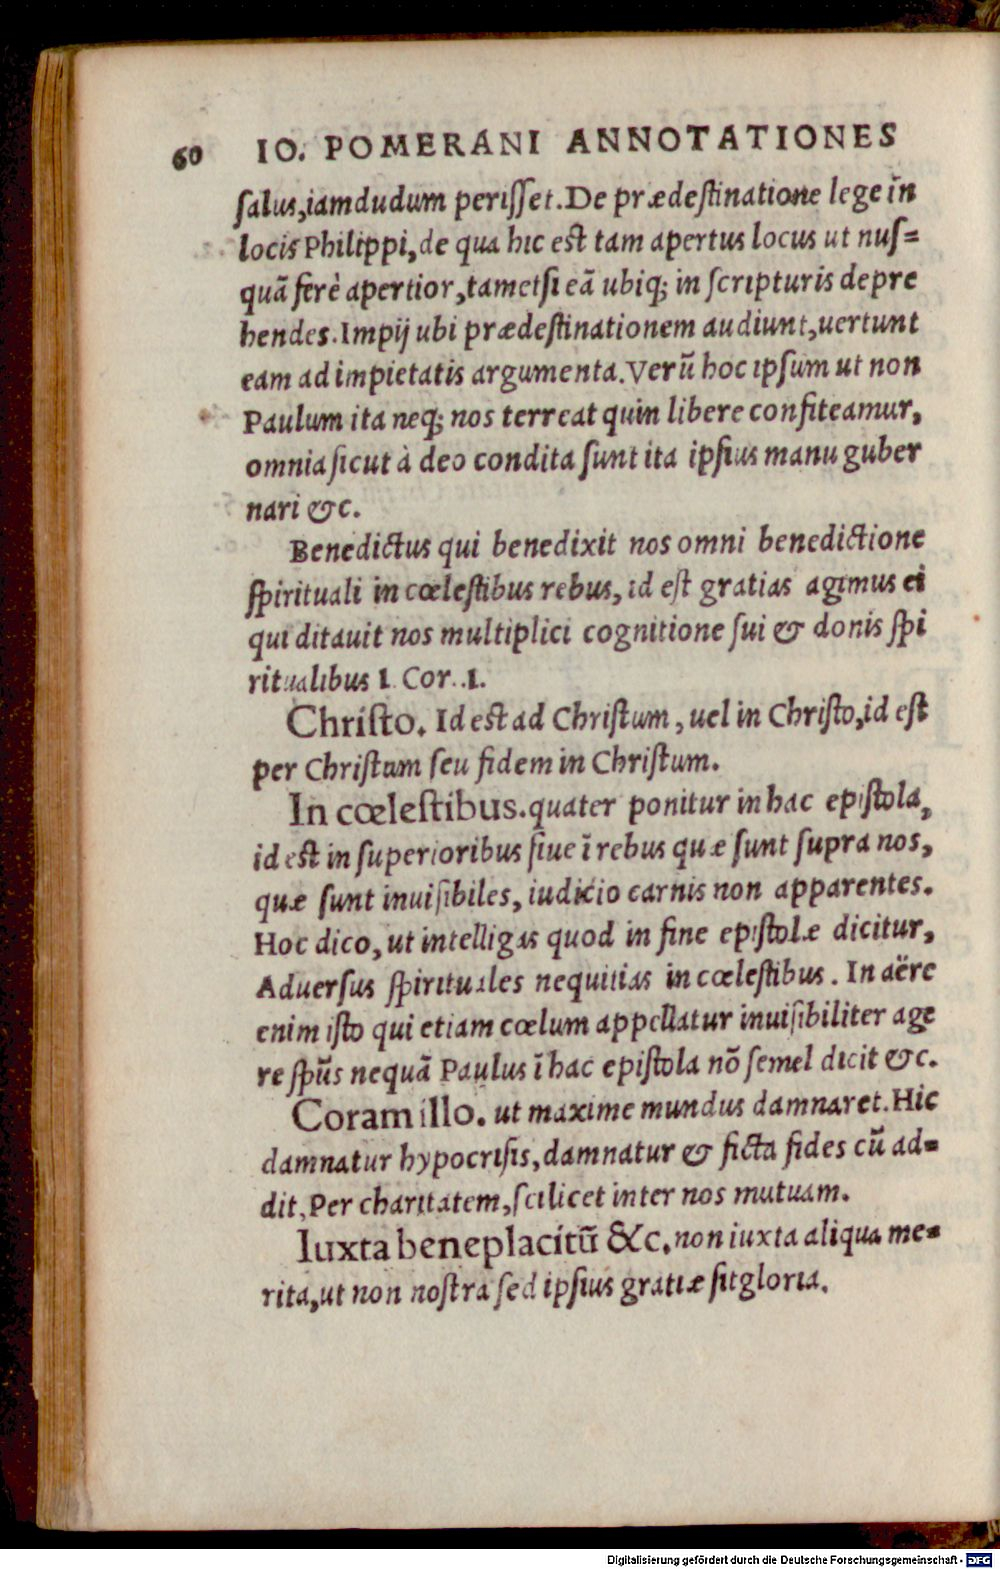 60 IO. POMERANI ANNOTATIONES
ſalus,iamdudum periſſet.De prædeſtinatione lege in
locis Philippi,de qua hic eſt tam apertus locus ut nuſ=
quã ferè apertior,tametſi eã ubiq; in ſcripturis depre
hendes.Impij ubi prædeſtinationem audiunt,uertunt
eam ad impietatis argumenta.Verũ hoc ipſum ut non
Paulum ita neq; nos terreat quin libere confiteamur,
omnia ſicut à deo condita ſunt ita ipſius manu guber
nari &c.
Benedictus qui benedixit nos omni benedictione
ſpirituali in cœleſtibus rebus, id eſt gratias agimus ei
qui ditauit nos multiplici cognitione ſui & donis ſpi
ritualibus 1. Cor. .1.
Chriſto. Id eſt ad Chriſtum, uel in Chriſto,id eſt
per Chriſtum ſeu fidem in Chriſtum.
In cœleſtibus.quater ponitur in hac epiſtola,
id eſt in ſuperioribus ſiue ĩ rebus quæ ſunt ſupra nos,
quæ ſunt inuiſibiles, iudicio carnis non apparentes.
Hoc dico, ut intelligas quod in fine epiſtolæ dicitur,
Aduerſus ſpirituales nequitias in cœleſtibus. In aëre
enim iſto qui etiam cœlum appellatur inuiſibiliter age
re ſpũs nequã Paulus ĩ hac epiſtola nõ ſemel dicit &c.
Coram illo. ut maxime mundus damnaret.Hic
damnatur hypocriſis,damnatur & ficta fides cũ ad=
dit,Per charitatem,ſcilicet inter nos mutuam.
Iuxta beneplacitũ &c.non iuxta aliqua me=
rita,ut non noſtra ſed ipſius gratiæ ſit gloria.
Digitalisierung gefördert durch die Deutsche Forschungsgemeinschaft - DFG